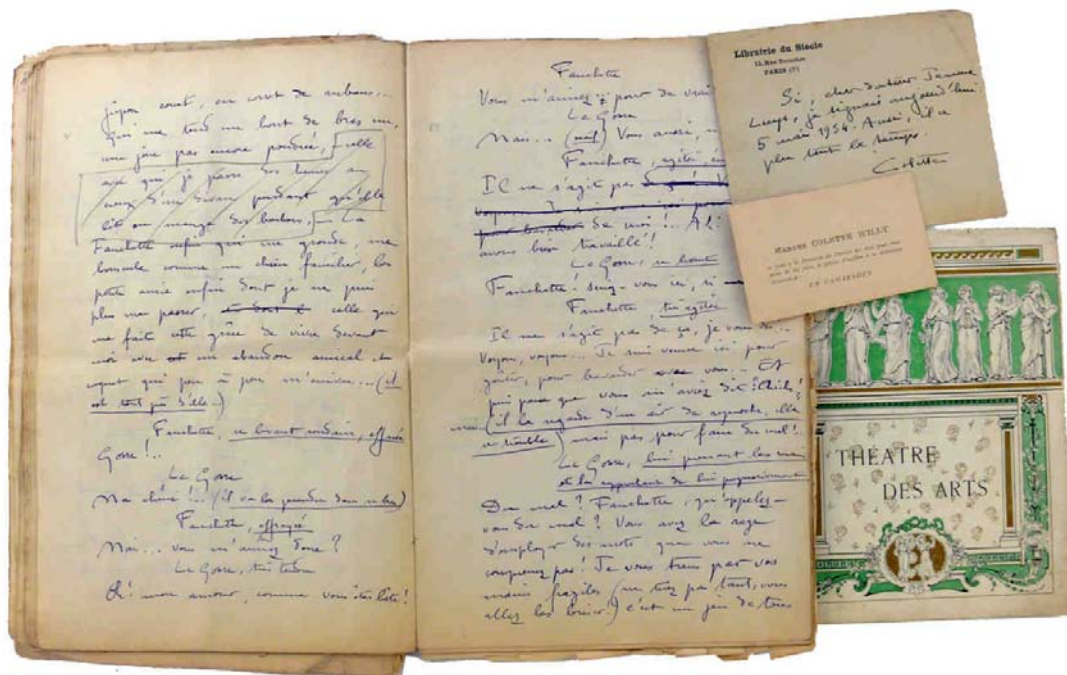 jupon court, en corset de rubans...
qui me tend un bout de bras nu,
une joue pas encore poudrée, celle
avec qui je passe des heures au
creux d'un divan pendant qu'elle
lit ou mange des bonbons, La
Fanchette enfin qui me gronde, me
bouscule comme un chien familier, la
petite amie enfin dont je ne puis
plus me passer, celle qui
me faite cette grâce de vivre devant
moi avec un abandon amical et
coquet qui peu à peu m'enivre... (il
est tout près d'elle...)
Fanchette, se levant soudain, effrayée
Gosse!..
Le Gosse
Ma chérie!... (il va la prendre dans ses bras)
Fanchette, effrayée
Mais... vous m'aimez donc?
Le Gosse, très tendre
Oh! mon amour, comme vous êtes bête!
Fanchette
Vous m'aimez... pour de vrai
Le Gosse
Mais... (naïf) Vous aussi,
Fanchette, agitée,
Il ne s'agit pas
de moi!..
avons bien travaillé!
Le Gosse,
Fanchette! venez-vous ici, si
Fanchette, très agitée
Il ne s'agit pas de ça, je vous
Voyons, voyons... Je suis venue ici pour
goûter, pour bavarder avec vous... Et
puis parce que vous m'aviez dit: "Chiche!"
(il la regarde d'un air de reproche, elle
se trouble) mais pas pour faire du mal!..
Le Gosse, lui prenant les mains
et la rapprochant de lui
Du mal? Fanchette, qu'appelez-
vous du mal? Vous avez la rage
d'employer des mots que vous ne
comprenez pas! Je vous tiens par vos
mains fragiles (ne tirez pas tant, vous
allez les briser!) c'est un jeu de tous
Librairie du Siècle
PARIS
Si, cher docteur
je signais aujourd'hui
5 mai 1954. Aussi, il a
plu tout le temps.
Colette
MADAME COLETTE WILLY
EN CAMARADES
THÉATRE
DES ARTS